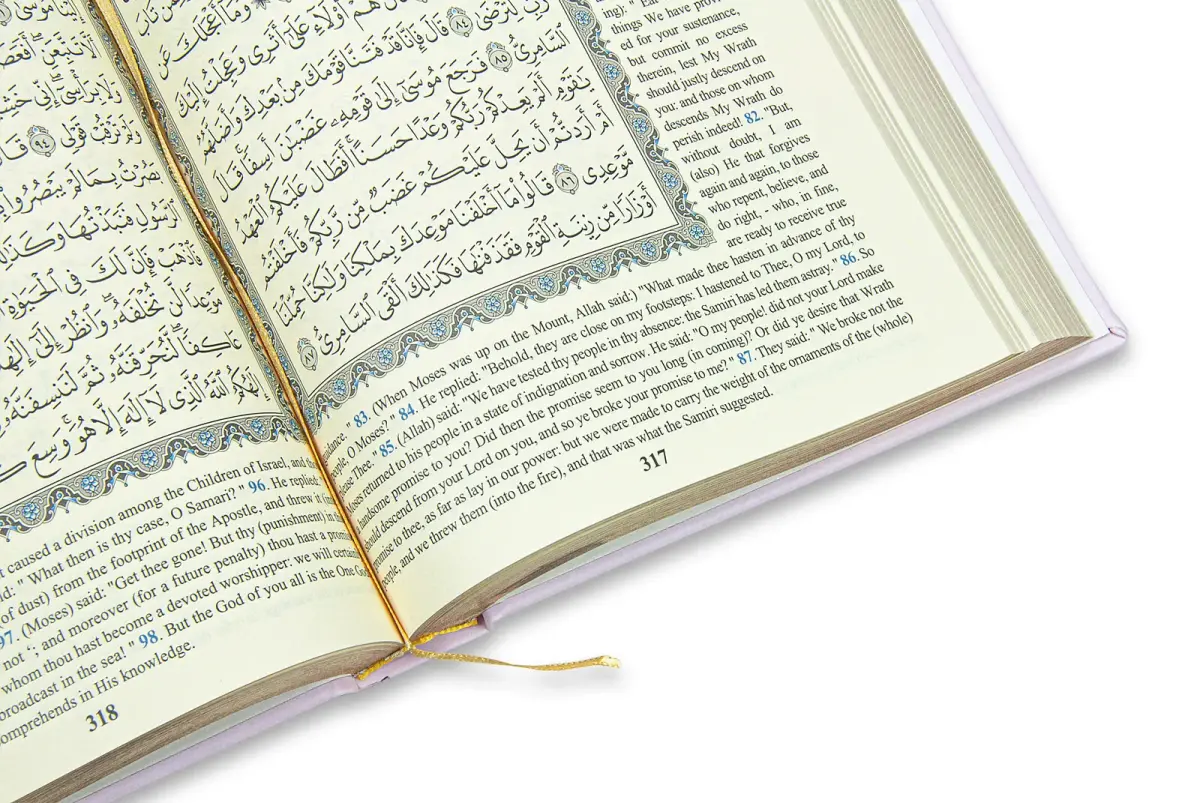 وَمَآ أَعْجَلَكَ عَن
هُمْ أُوْلَآءِ عَلَىٰٓ أَثَرِى وَعَجِلْتُ إِلَيْكَ
رَبِّ لِتَرْضَىٰ ٨٤ قَالَ فَإِنَّا قَدْ فَتَنَّا قَوْمَكَ مِنۢ بَعْدِكَ وَأَضَلَّهُمُ
ٱلسَّامِرِىُّ ٨٥ فَرَجَعَ مُوسَىٰٓ إِلَىٰ قَوْمِهِۦ غَضْبَٰنَ أَسِفًا قَالَ
يَٰقَوْمِ أَلَمْ يَعِدْكُمْ رَبُّكُمْ وَعْدًا حَسَنًا أَفَطَالَ عَلَيْكُمُ ٱلْعَهْدُ
أَمْ أَرَدتُّمْ أَن يَحِلَّ عَلَيْكُمْ غَضَبٌ مِّن رَّبِّكُمْ فَأَخْلَفْتُم
مَّوْعِدِى ٨٦ قَالُوا۟ مَآ أَخْلَفْنَا مَوْعِدَكَ بِمَلْكِنَا وَلَٰكِنَّا حُمِّلْنَآ
أَوْزَارًا مِّن زِينَةِ ٱلْقَوْمِ فَقَذَفْنَٰهَا فَكَذَٰلِكَ أَلْقَى ٱلسَّامِرِىُّ ٨٧
things We have provid-
ed for your sustenance,
but commit no excess
therein, lest My Wrath
should justly descend on
you: and those on whom
descends My Wrath do
perish indeed! 82. "But,
without doubt, I am
(also) He that forgives
again and again, to those
who repent, believe, and
do right, - who, in fine,
are ready to receive true
guidance. " 83. (When Moses was up on the Mount, Allah said:) "What made thee hasten in advance of thy
people, O Moses?" 84. He replied: "Behold, they are close on my footsteps: I hastened to Thee, O my Lord, to
please Thee." 85. (Allah) said: "We have tested thy people in thy absence: the Samiri has led them astray." 86. So
Moses returned to his people in a state of indignation and sorrow. He said: "O my people! did not your Lord make
a handsome promise to you? Did then the promise seem to you long (in coming)? Or did ye desire that Wrath
should descend from your Lord on you, and so ye broke your promise to me?" 87. They said: " We broke not the
promise to thee, as far as lay in our power: but we were made to carry the weight of the ornaments of the (whole)
people, and we threw them (into the fire), and that was what the Samiri suggested.
317
أَلَّا تَتَّبِعَنِ أَفَعَصَ
وَلَا بِرَأْسِىٓ إِنِّى خَشِ
وَلَمْ تَرْقُبْ قَوْلِى ٩٤ قَا
بَصُرْتُ بِمَا لَمْ يَبْصُرُوا۟
ٱلرَّسُولِ فَنَبَذْتُهَا وَكَذَٰلِ
فَٱذْهَبْ فَإِنَّ لَكَ فِى ٱلْحَيَوٰةِ
مَوْعِدًا لَّن تُخْلَفَهُۥ وَٱنظُرْ إِلَىٰٓ إِلَٰهِ
عَاكِفًا لَّنُحَرِّقَنَّهُۥ ثُمَّ لَنَنسِفَنَّهُۥ
إِلَٰهُكُمُ ٱللَّهُ ٱلَّذِى لَآ إِلَٰهَ إِلَّا هُوَ وَسِعَ
caused a division among the Children of Israel, and
" What then is thy case, O Samari? " 96. He replied:
(of dust) from the footprint of the Apostle, and threw it
97. (Moses) said: "Get thee gone! But thy (punishment) in
not ‘; and moreover (for a future penalty) thou hast a
whom thou hast become a devoted worshipper: we will
broadcast in the sea! " 98. But the God of you all is the One
comprehends in His knowledge.
318